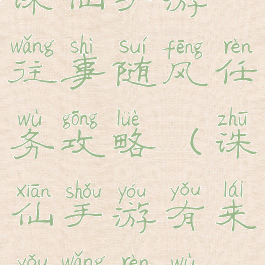 诛仙手游
wǎng shì suí fēng rèn
往事随风任
wù gōng lüè zhū
务攻略（诛
xiān shǒu yóu yǒu lái
仙手游有来
yǒu wǎng rèn wù